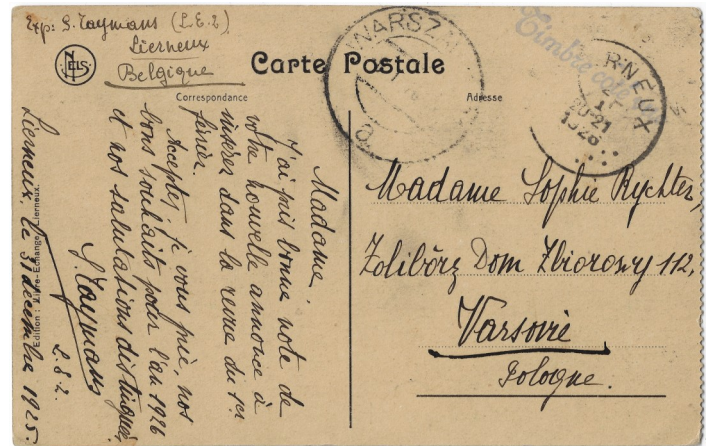 Exp: S. Taymans (L.E.2)
Lierneux
Belgique
NELS
Carte Postale
Correspondance
Adresse
WARSZ
Timbre côté
RNEUX
1
20-21
1926
Madame,
J'ai pris bonne note de
votre nouvelle annonce à
insérer dans la revue du 1er
février.
Acceptez, je vous prie, nos
bons souhaits pour l'an 1926
et nos salutations distinguées,
S. Taymans
L.E.2.
Lierneux, le 31 décembre 1925.
Edition: Livre-Echange, Lierneux.
Madame Sophie Rychter,
Zolibórz Dom Zbiorowy 112,
Varsovie
Pologne.